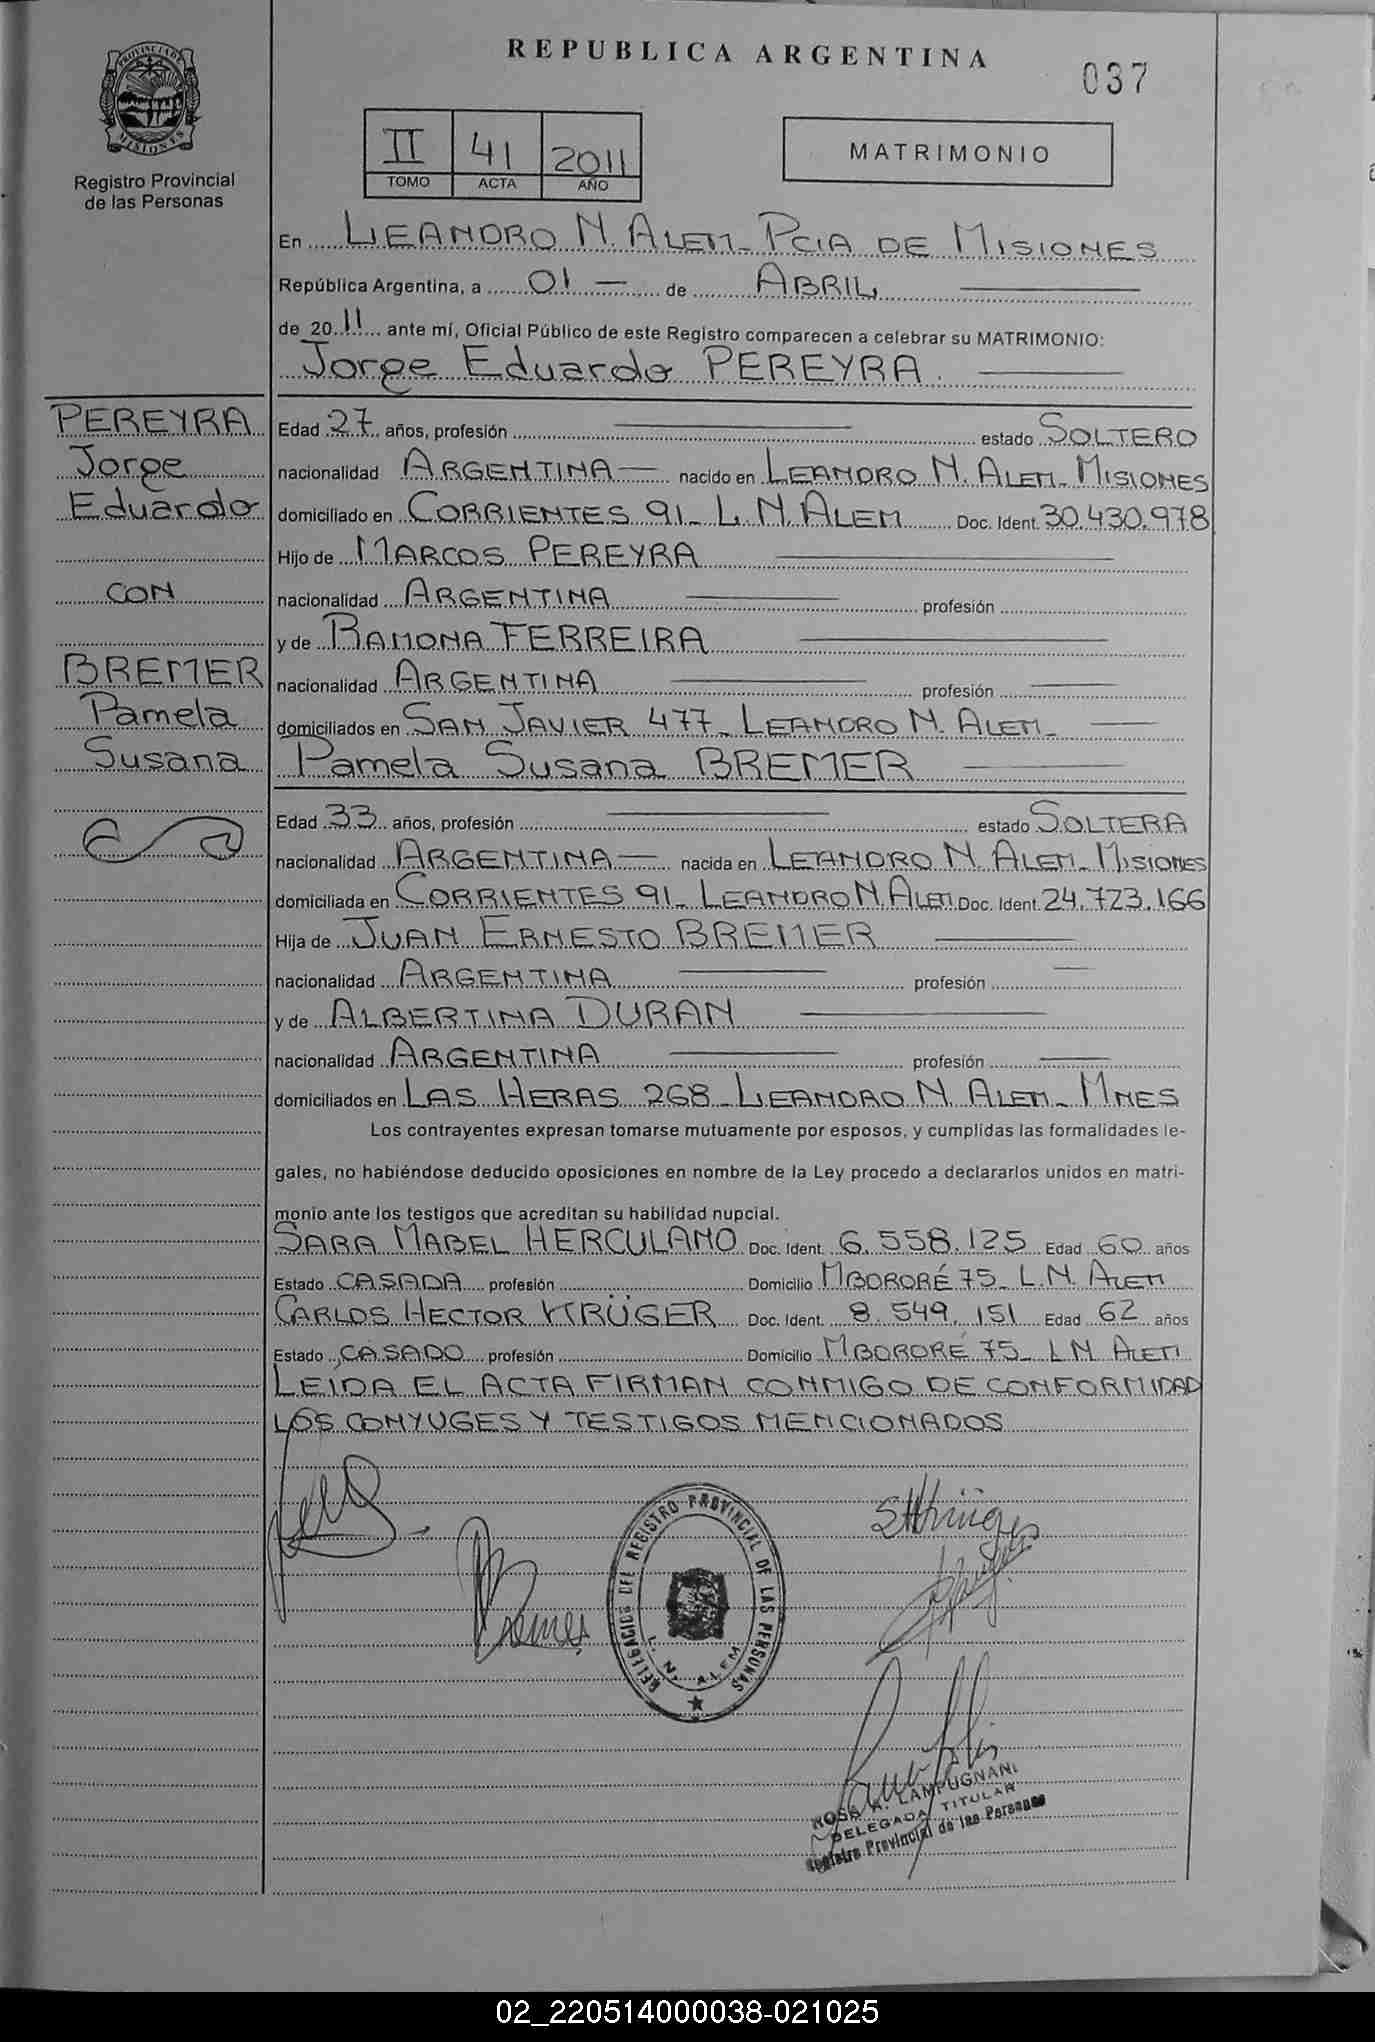 REPUBLICA ARGENTINA
037
PROVINCIA DE MISIONES
Registro Provincial
de las Personas
II 41 2011
TOMO ACTA AÑO
MATRIMONIO
En LEANDRO N. ALEM - PCIA DE MISIONES
República Argentina, a 01 — de ABRIL
de 2011 ante mí, Oficial Público de este Registro comparecen a celebrar su MATRIMONIO:
Jorge Eduardo PEREYRA
PEREYRA
Jorge
Eduardo
CON
BREMER
Pamela
Susana
Edad 27 años, profesión — estado SOLTERO
nacionalidad ARGENTINA — nacido en LEANDRO N. ALEM - MISIONES
domiciliado en CORRIENTES 91 - L. N. ALEM Doc. Ident. 30.430.978
Hijo de MARCOS PEREYRA
nacionalidad ARGENTINA — profesión
y de RAMONA FERREIRA
nacionalidad ARGENTINA — profesión —
domiciliados en SAN JAVIER 477 - LEANDRO N. ALEM -
Pamela Susana BREMER
Edad 33 años, profesión — estado SOLTERA
nacionalidad ARGENTINA — nacida en LEANDRO N. ALEM - MISIONES
domiciliada en CORRIENTES 91 - LEANDRO N. ALEM Doc. Ident. 24.723.166
Hija de JUAN ERNESTO BREMER
nacionalidad ARGENTINA — profesión —
y de ALBERTINA DURAN
nacionalidad ARGENTINA — profesión —
domiciliados en LAS HERAS 268 - LEANDRO N. ALEM - MNES
Los contrayentes expresan tomarse mutuamente por esposos, y cumplidas las formalidades le-
gales, no habiéndose deducido oposiciones en nombre de la Ley procedo a declararlos unidos en matri-
monio ante los testigos que acreditan su habilidad nupcial.
SARA MABEL HERCULANO Doc. Ident. 6.558.125 Edad 60 años
Estado CASADA profesión Domicilio MBORORÉ 75 - L.N. ALEM
CARLOS HECTOR KRÜGER Doc. Ident. 8.549.151 Edad 62 años
Estado CASADO profesión Domicilio MBORORÉ 75 - L N ALEM
LEIDA EL ACTA FIRMAN CONMIGO DE CONFORMIDAD
LOS CONYUGES Y TESTIGOS MENCIONADOS
Bremer
DELEGACION DEL REGISTRO PROVINCIAL DE LAS PERSONAS
L. N. ALEM
ROSA A. LAMPUGNANI
DELEGADA TITULAR
Registro Provincial de las Personas
02_220514000038-021025